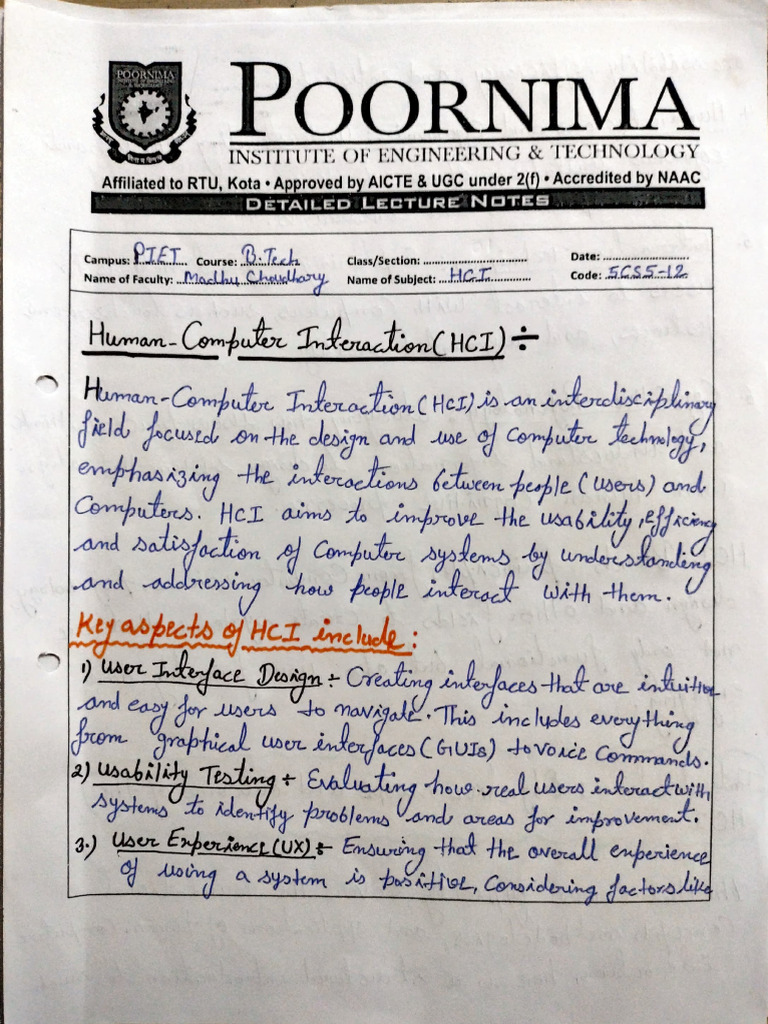 POORNIMA
POORNIMA
INSTITUTE OF ENGINEERING & TECHNOLOGY
Affiliated to RTU, Kota • Approved by AICTE & UGC under 2(f) • Accredited by NAAC
DETAILED LECTURE NOTES
Campus: PIET Course: B.Tech Class/Section: Date:
Name of Faculty: Madhu Choudhary Name of Subject: HCI Code: 5CS5-12
Human-Computer Interaction (HCI) ÷
Human-Computer Interaction (HCI) is an interdisciplinary
field focused on the design and use of Computer technology,
emphasizing the interactions between people (users) and
Computers. HCI aims to improve the usability, efficiency
and satisfaction of Computer systems by understanding
and addressing how people interact with them.
Key aspects of HCI include:
1) User Interface Design ÷ Creating interfaces that are intuitive
and easy for users to navigate. This includes everything
from graphical user interfaces (GUIs) to voice Commands.
2) Usability Testing ÷ Evaluating how real users interact with
systems to identify problems and areas for improvement.
3.) User Experience (UX) ÷ Ensuring that the overall experience
of using a system is positive, Considering factors like